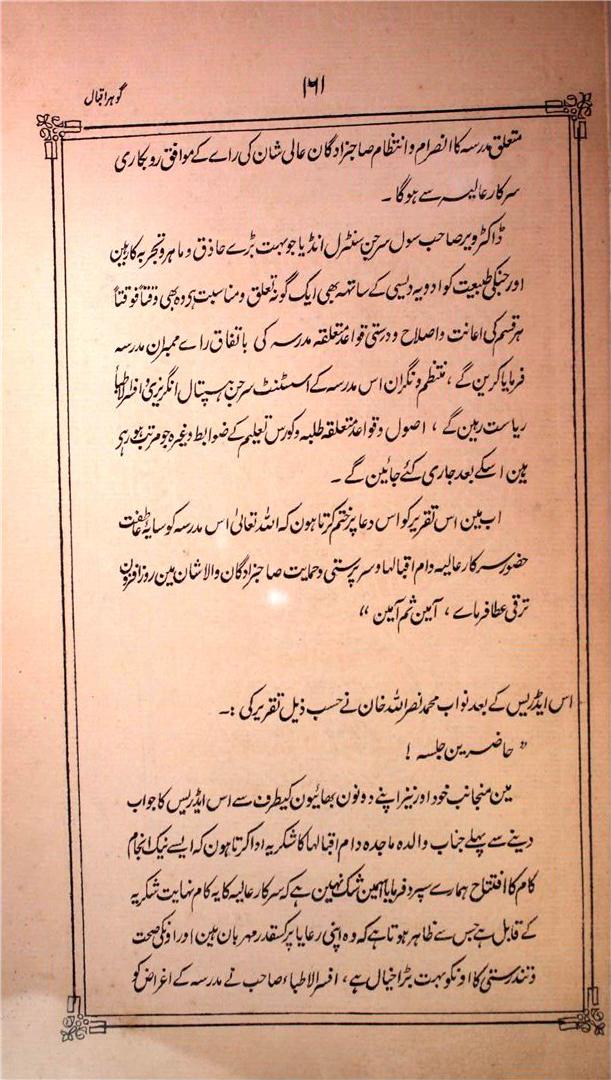 ۱۶۱
گوہر اقبال
متعلق مدرسہ کا انصرام و انتظام صاحبزادگان عالی شان کی راے کے موافق روبکاری
سرکار عالیہ سے ہوگا ۔
ڈاکٹر ویر صاحب سول سرجن سنٹرل انڈیا جو بہت بڑے حاذق و ماہر و تجربہ کار ہین
اور جنکی طبیعت کو ادویہ دیسی کے ساتھہ بھی ایک گونہ تعلق و مناسبت ہے وہ بھی وقتاً فوقتاً
ہر قسم کی اعانت و اصلاح و درستی قواعد متعلقہ مدرسہ کی باتفاق راے ممبران مدرسہ
فرمایا کرین گے ، منتظم و نگران اس مدرسہ کے اسسٹنٹ سرجن ہسپتال انگریزی و افسر الاطبا
ریاست رہین گے ، اصول و قواعد متعلقہ طلبہ و کورس تعلیم کے ضوابط وغیرہ جو مرتب ہو رہی
ہین اسکے بعد جاری کئے جائین گے ۔
اب مین اس تقریر کو اس دعا پر ختم کرتا ہون کہ اللہ تعالیٰ اس مدرسہ کو سایۂ عاطفت
حضور سرکار عالیہ دام اقبالہا و سرپرستی و حمایت صاحبزادگان والا شان مین روز افزون
ترقی عطا فرماے ، آمین ثم آمین “
اس ایڈریس کے بعد نواب محمد نصر اللہ خان نے حسب ذیل تقریر کی :۔
” حاضرین جلسہ !
مین منجانب خود اور نیز اپنے دونون بھائیون کیطرف سے اس ایڈریس کا جواب
دینے سے پہلے جناب والدہ ماجدہ دام اقبالہا کا شکریہ ادا کرتا ہون کہ ایسے نیک انجام
کام کا افتتاح ہمارے سپرد فرمایا اسمین شک نہین ہے کہ سرکار عالیہ کا یہ کام نہایت شکریہ
کے قابل ہے جس سے ظاہر ہوتا ہے کہ وہ اپنی رعایا پر کسقدر مہربان ہین اور اونکی صحت
و تندرستی کا اونکو بہت بڑا خیال ہے ، افسر الاطباء صاحب نے مدرسہ کے اغراض کو